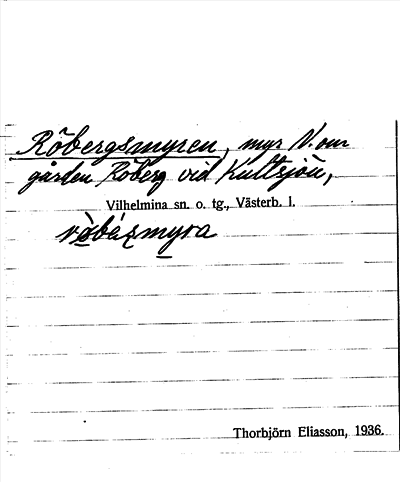 Röbergsmyren, myr V. om
gården Röberg vid Kultsjön,
Vilhelmina sn. o. tg., Västerb. l.
Thorbjörn Eliasson, 1936.